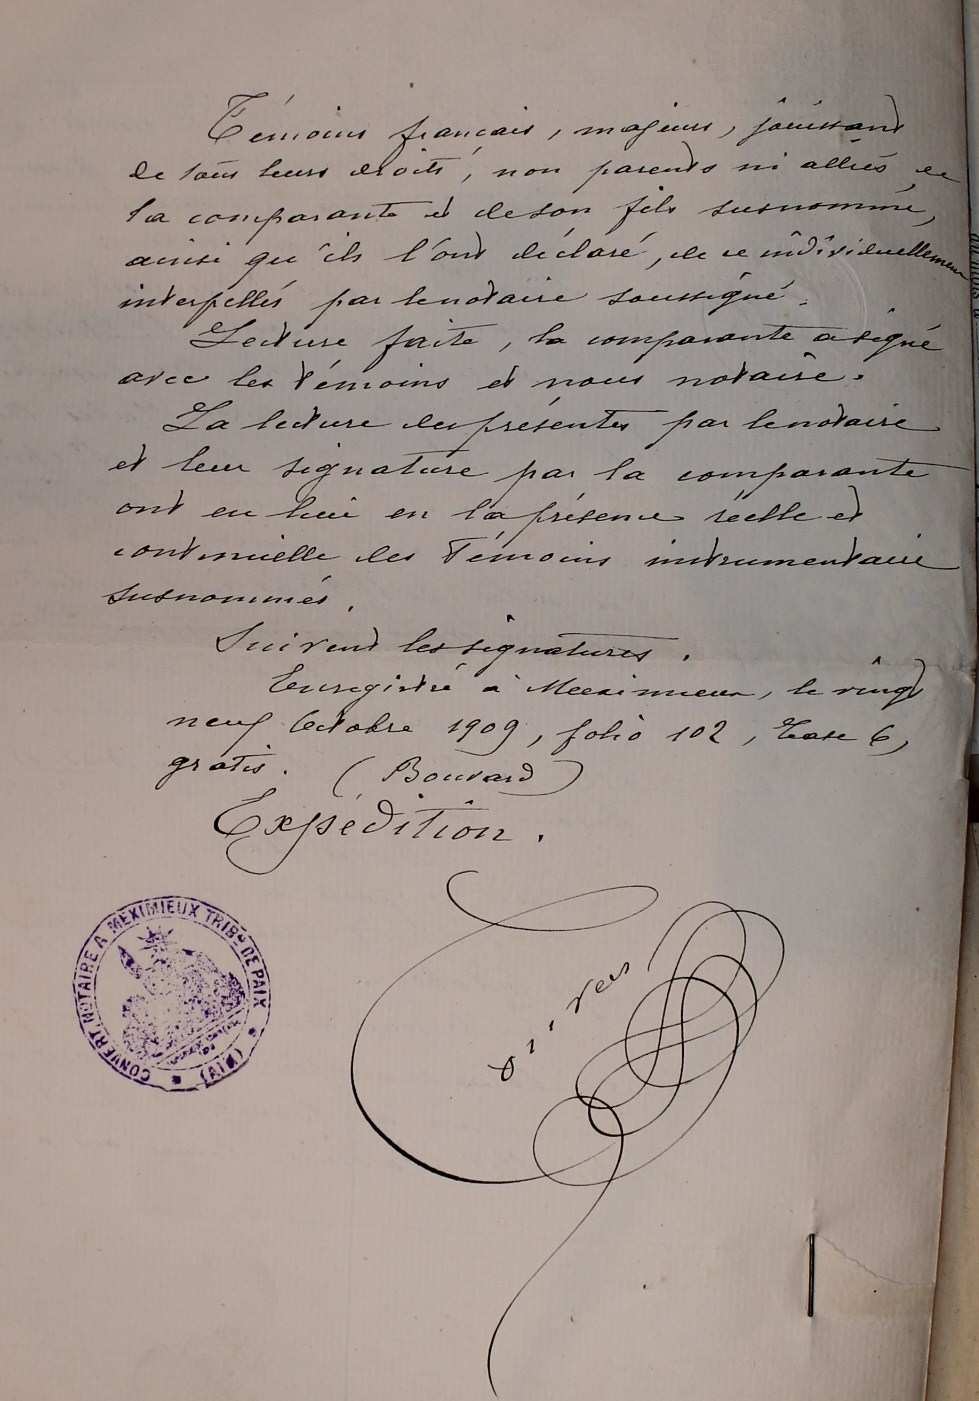 Témoins français, majeurs, jouissant
de tous leurs droits, non parents ni alliés de
la comparante et de son fils susnommé,
ainsi qu'ils l'ont déclaré, de ce individuellement
interpellés par le notaire soussigné.
Lecture faite, la comparante a signé
avec les témoins et nous notaire.
La lecture des présentes par le notaire
et leur signature par la comparante
ont eu lieu en la présence réelle et
continuelle des témoins instrumentaire
susnommés.
Suivent les signatures.
Enregistré à Meximieux, le vingt
neuf Octobre 1909, folio 102, Case 6,
gratis. (Bouvard)
Expédition.
CONVERT NOTAIRE A MEXIMIEUX TRIBAL DE PAIX
(AIN)